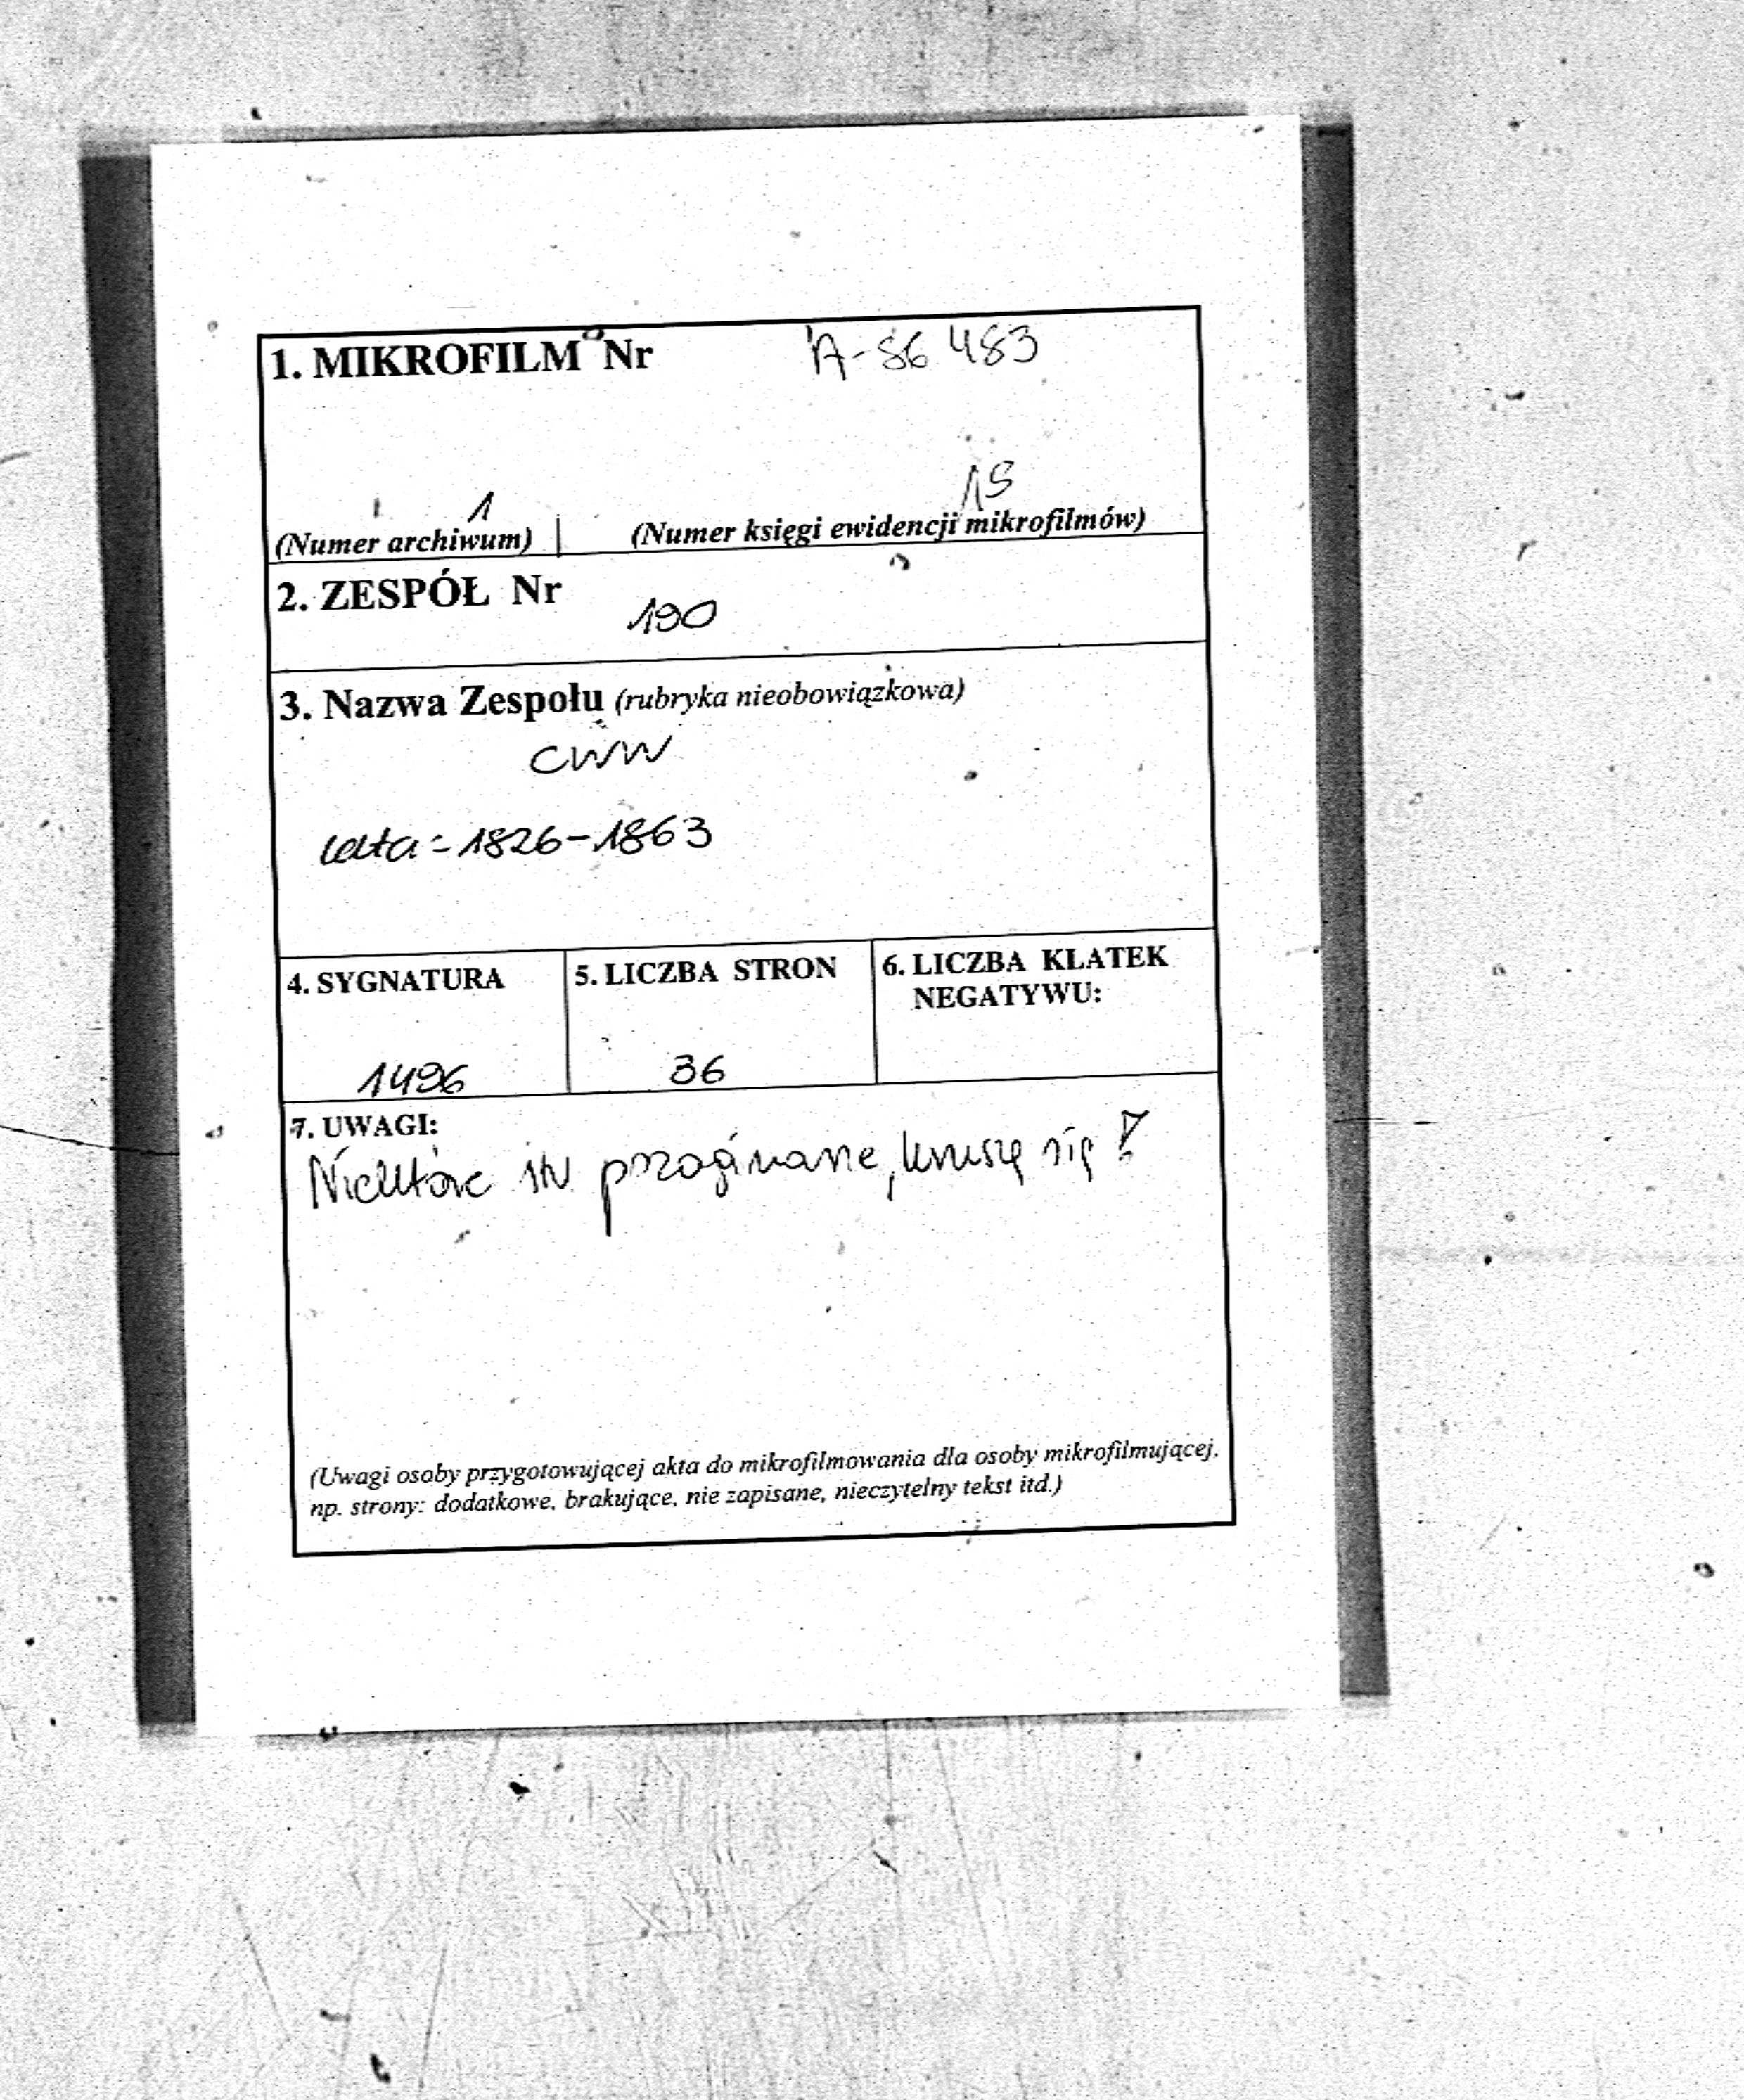 1. MIKROFILM Nr A-86 483
1 15
(Numer archiwum) | (Numer księgi ewidencji mikrofilmów)
2. ZESPÓŁ Nr
190
3. Nazwa Zespołu (rubryka nieobowiązkowa)
CWW
lata = 1826-1863
4. SYGNATURA 5. LICZBA STRON 6. LICZBA KLATEK
NEGATYWU:
1496 36
7. UWAGI:
Niektóre str przoginane, kruszą się!
(Uwagi osoby przygotowującej akta do mikrofilmowania dla osoby mikrofilmującej,
np. strony: dodatkowe, brakujące, nie zapisane, nieczytelny tekst itd.)